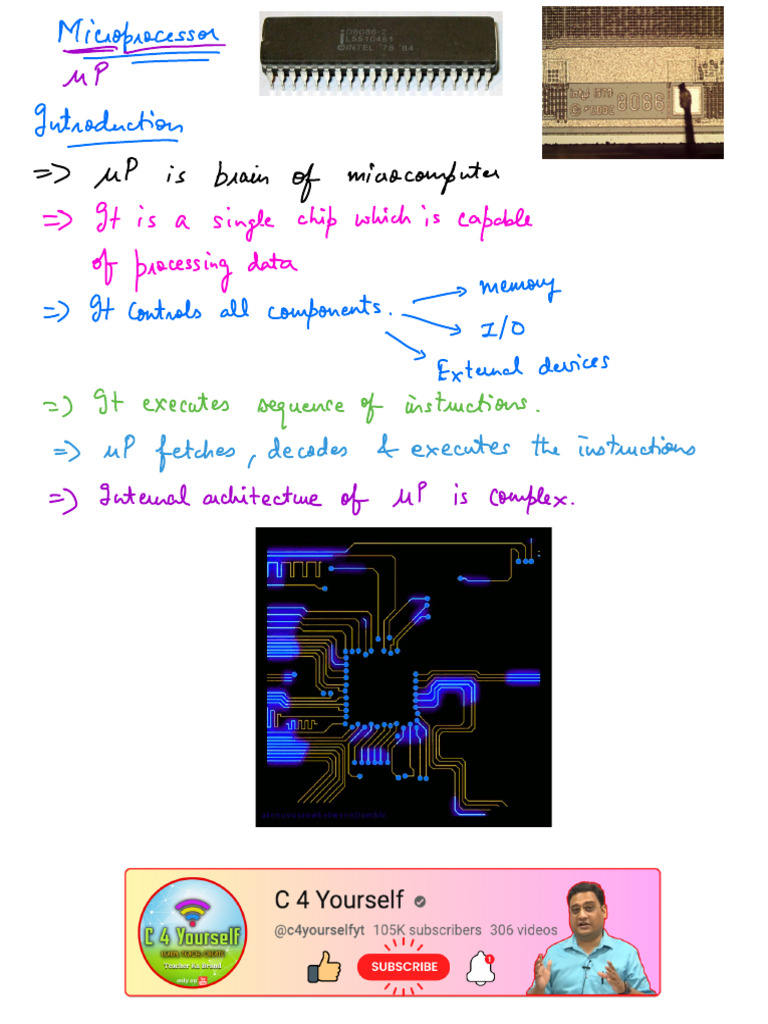 Microprocessor
μP
i D8086-2
L5510461
© INTEL '78 '84
8086
Introduction
=> μP is brain of microcomputer
=> It is a single chip which is capable
of processing data
=> It controls all components. → memory
→ I/O
→ External devices
=> It executes sequence of instructions.
=> μP fetches, decodes & executes the instructions
=> Internal architecture of μP is complex.
C 4 Yourself
@c4yourselfyt 105K subscribers 306 videos
C 4 Yourself
LEARN, TEACH, CREATE
Teacher As Brand
only on
SUBSCRIBE
1